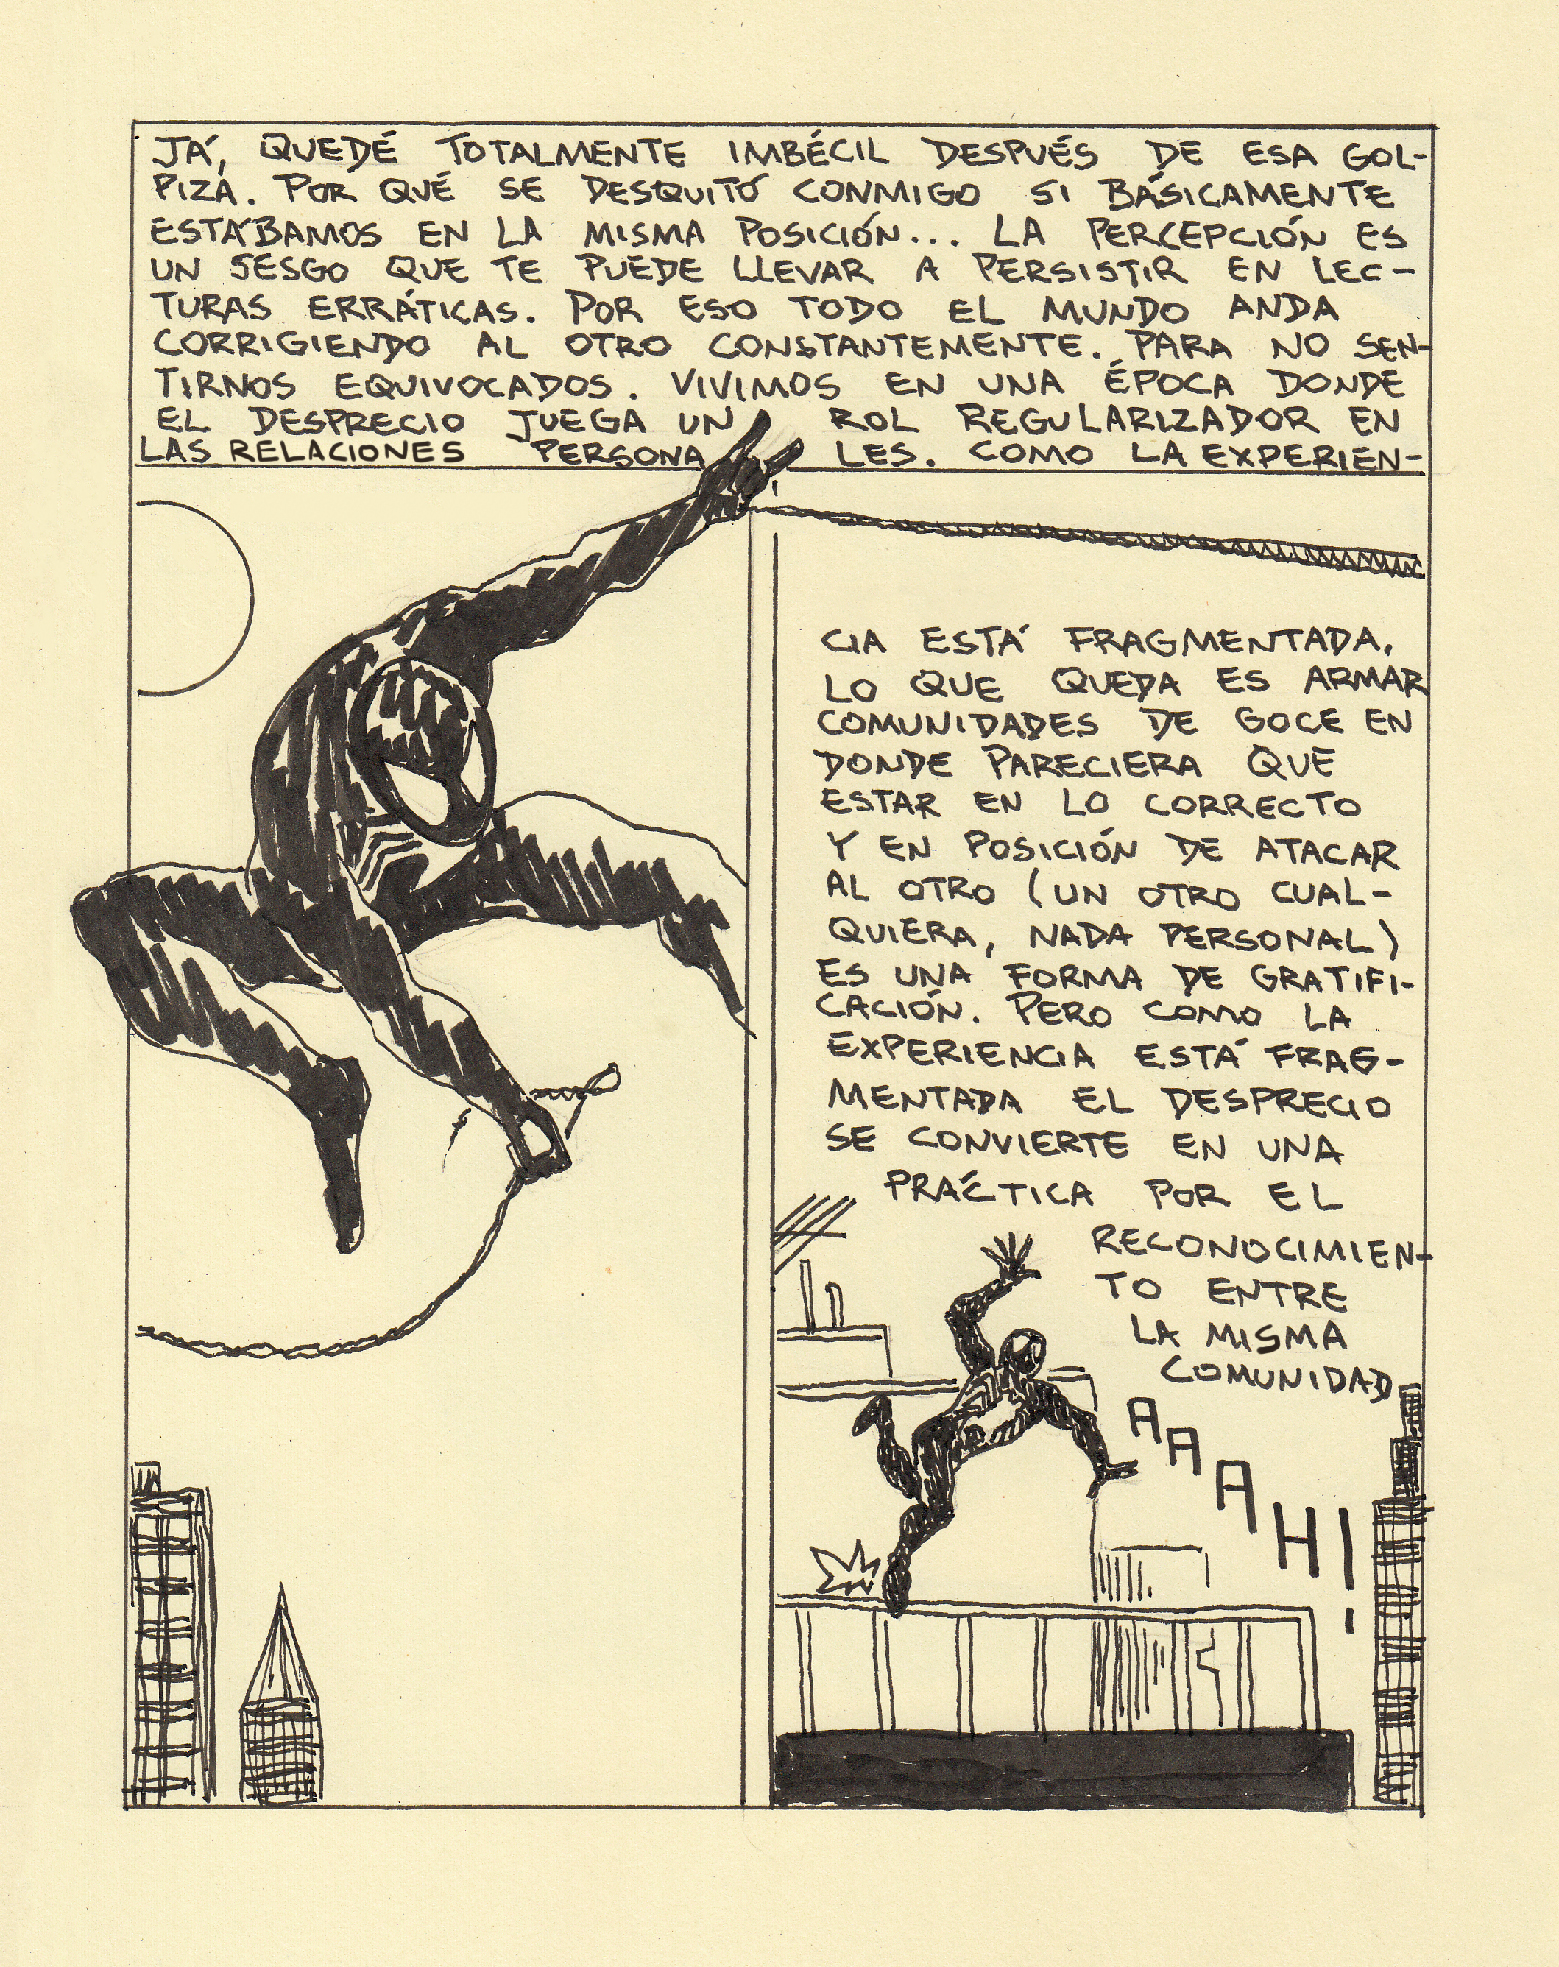 JÁ, QUEDÉ TOTALMENTE IMBÉCIL DESPUÉS DE ESA GOL-
PIZA. POR QUÉ SE DESQUITÓ CONMIGO SI BÁSICAMENTE
ESTÁBAMOS EN LA MISMA POSICIÓN... LA PERCEPCIÓN ES
UN SESGO QUE TE PUEDE LLEVAR A PERSISTIR EN LEC-
TURAS ERRÁTICAS. POR ESO TODO EL MUNDO ANDA
CORRIGIENDO AL OTRO CONSTANTEMENTE. PARA NO SEN-
TIRNOS EQUIVOCADOS. VIVIMOS EN UNA ÉPOCA DONDE
EL DESPRECIO JUEGA UN ROL REGULARIZADOR EN
LAS RELACIONES PERSONALES. COMO LA EXPERIEN-
CIA ESTÁ FRAGMENTADA,
LO QUE QUEDA ES ARMAR
COMUNIDADES DE GOCE EN
DONDE PARECIERA QUE
ESTAR EN LO CORRECTO
Y EN POSICIÓN DE ATACAR
AL OTRO (UN OTRO CUAL-
QUIERA, NADA PERSONAL)
ES UNA FORMA DE GRATIFI-
CACIÓN. PERO COMO LA
EXPERIENCIA ESTÁ FRAG-
MENTADA EL DESPRECIO
SE CONVIERTE EN UNA
PRÁCTICA POR EL
RECONOCIMIEN-
TO ENTRE
LA MISMA
COMUNIDAD
AAAH!